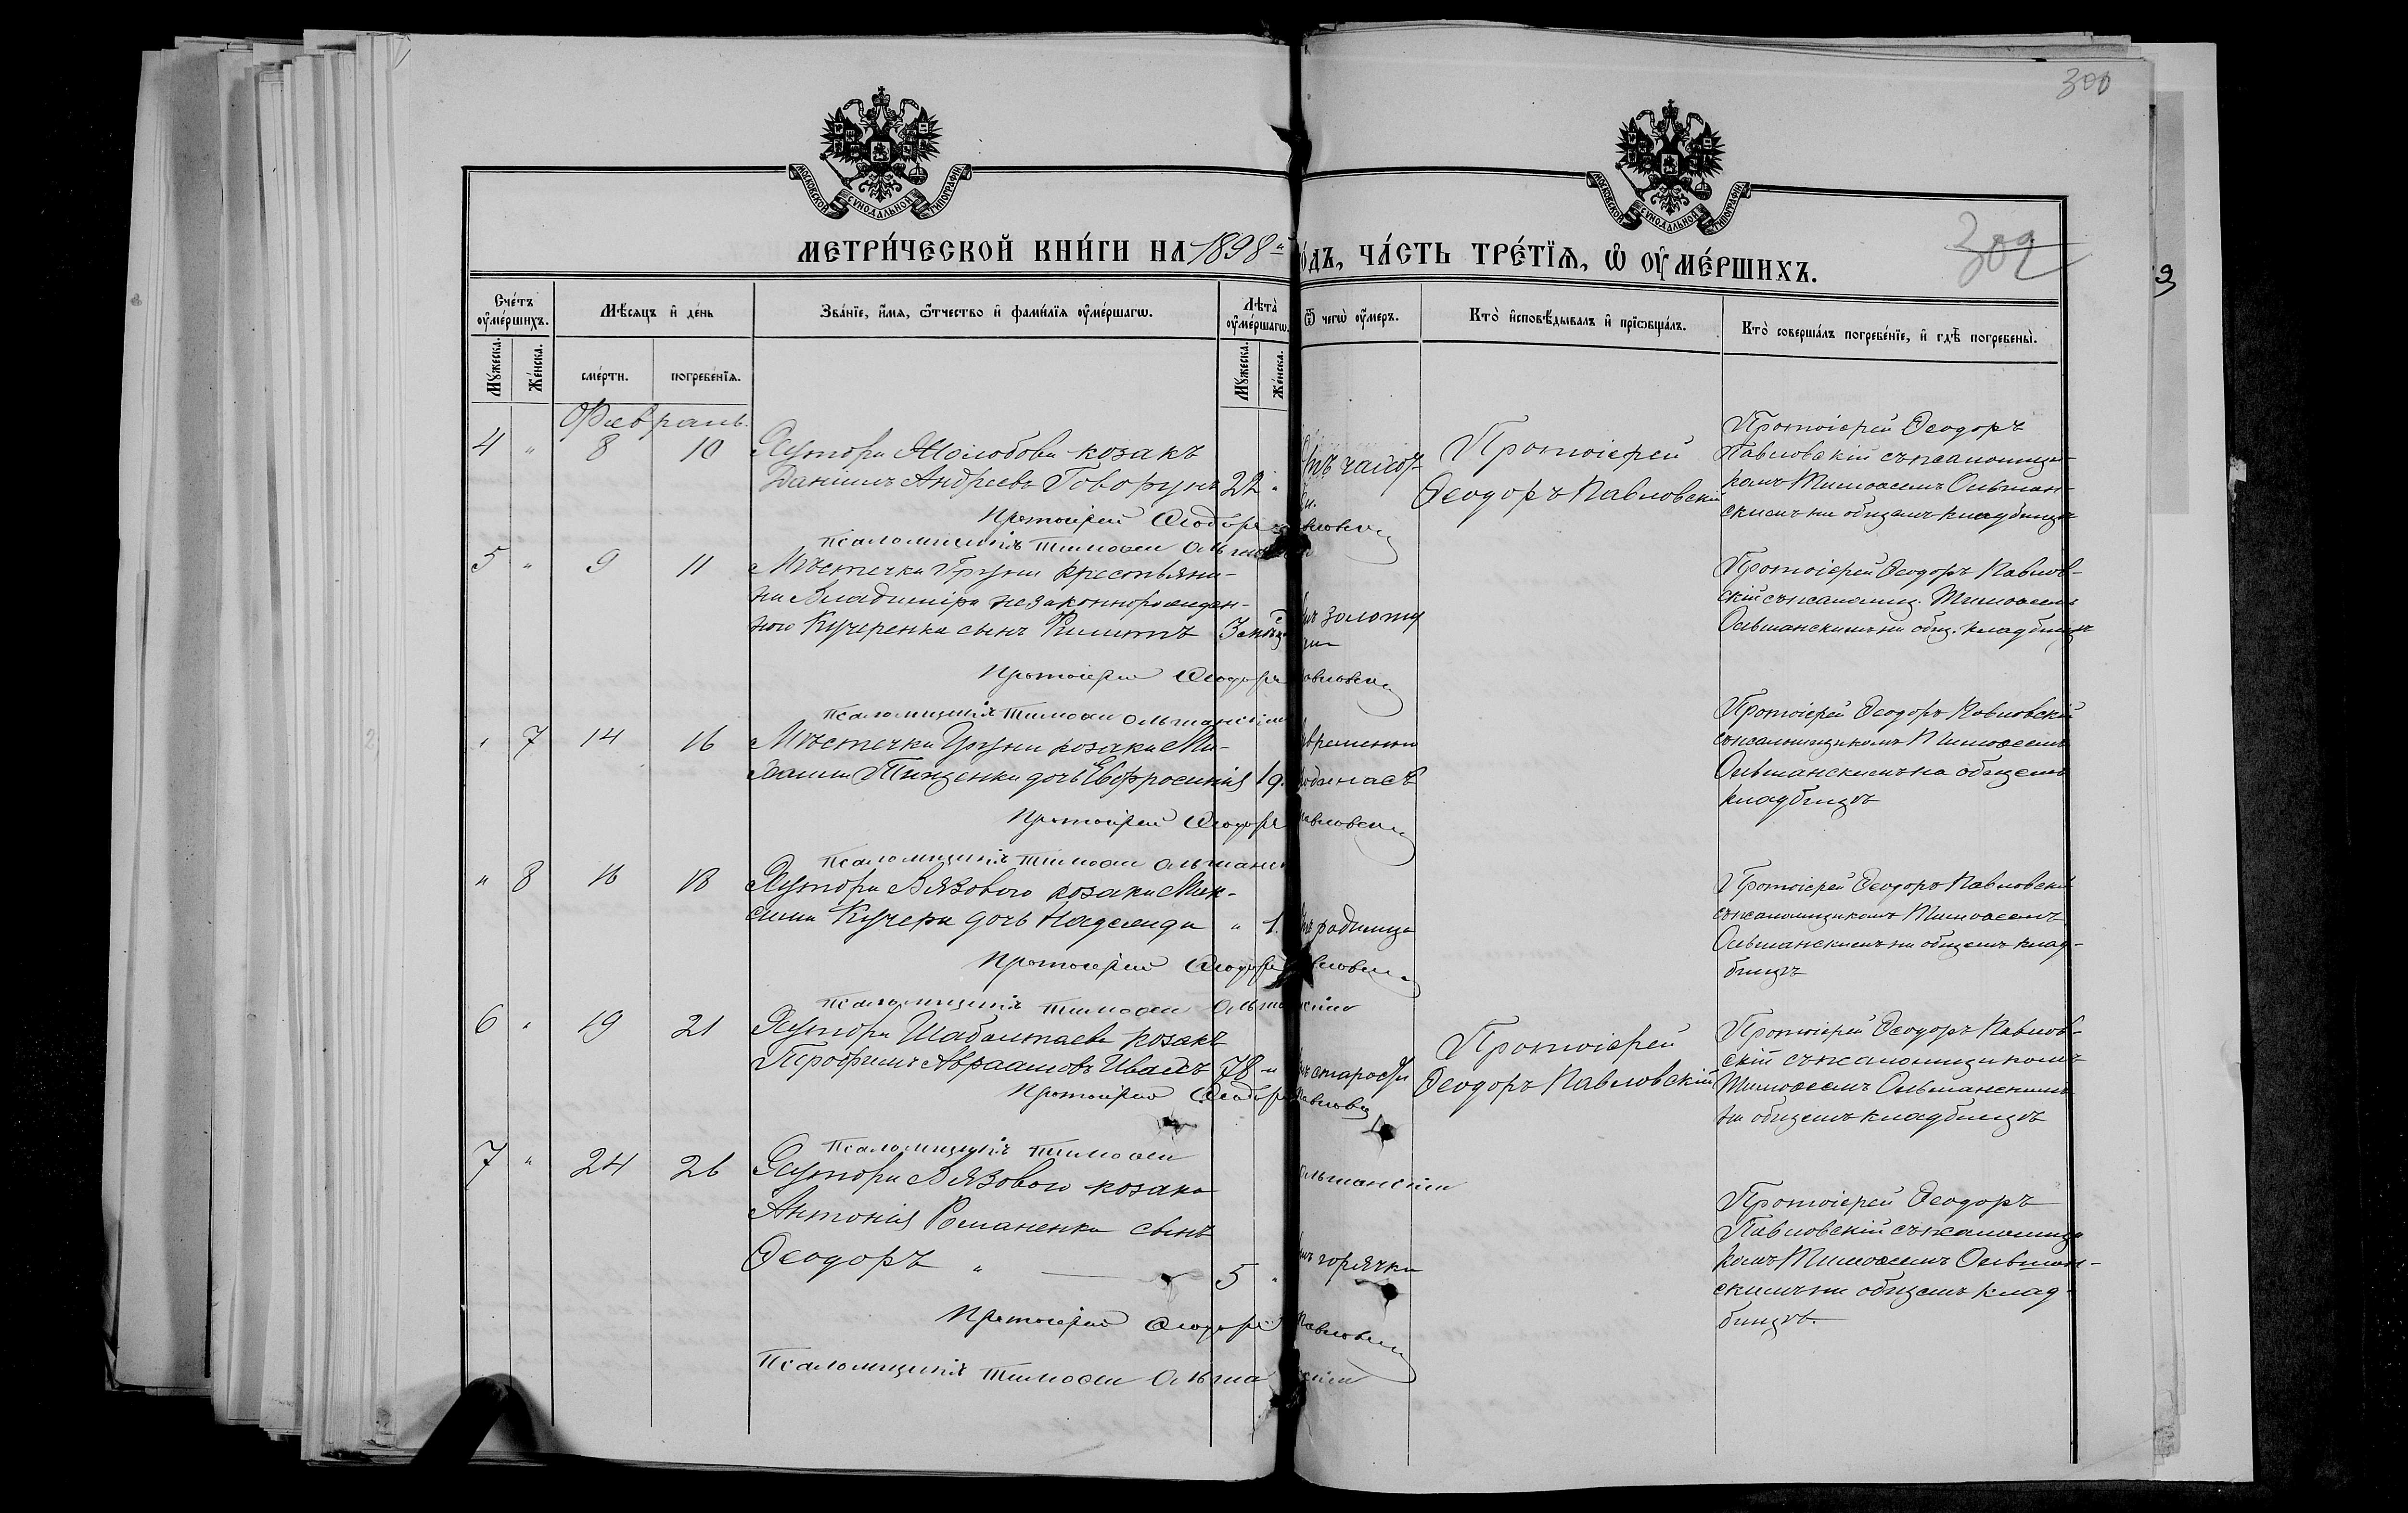 300
302
МОСКОВСКОЙ СѴНОДАЛЬНОЙ ТИПОГРАФІИ
МОСКОВСКОЙ СѴНОДАЛЬНОЙ ТИПОГРАФІИ
МЕТРИ́ЧЕСКОЙ КНИ́ГИ НА 1898й го́дъ, ЧА́СТЬ ТРЕ́ТЇѦ, Ѿ ОУМЕ́РШИХЪ.
Сче́тъ оуме́ршихъ.
Мꙋжеска.
Же́нска.
Мѣ́сяцъ и҆ де́нь
сме́рти.
погребе́нїѧ.
Зва́нїе, и҆́мѧ, ѿтчество и҆ фами́лїѧ оуме́ршагѡ.
Лѣта̀ оуме́ршагѡ.
Мꙋжеска.
Же́нска.
Ѿ чегѡ̀ оу́меръ.
Кто̀ и҆сповѣ́дывалъ и҆ прїѡбща́лъ.
Кто̀ соверша́лъ погребе́нїе, и҆ гдѣ̀ погребены̀.
Февраль.
4 " 8 10 Хутора козакъ
Даніилъ Андреевъ Говорунъ 22 "
Протоіерей
Ѳеодоръ Павловскій
Протоіерей Ѳеодоръ
Павловскій съ псаломщи-
комъ Тимоѳеемъ Ольшан-
скимъ на общемъ кладбищѣ
Протоіерей Ѳеодоръ Павловскій
Псаломщикъ Тимоѳей Ольшанскій
5 " 9 11 Мѣстечка Груни крестьяни-
на Владиміра незаконнорожден-
наго Кучеренка сынъ Филиппъ 3 мѣс
золоту
Протоіерей Ѳеодоръ Павлов-
скій съ псаломщ. Тимоѳеемъ
Ольшанскимъ на общ. кладбищѣ
Протоіерей Ѳеодоръ Павловскій
Псаломщикъ Тимоѳей Ольшанскій
" 7 14 16 Мѣстечка Груни козака Ми-
хаила Тищенка дочь Евфросинія 19.
Протоіерей Ѳеодоръ Павловскій
съ псаломщикомъ Тимоѳеемъ
Ольшанскимъ на общемъ
кладбищѣ
Протоіерей Ѳеодоръ Павловскій
Псаломщикъ Тимоѳей Ольшанскій
" 8 16 18 Хутора Вязоваго козака Мак-
сима Кучера дочь Надежда " 1.
родимца
Протоіерей Ѳеодоръ Павловскій
съ псаломщикомъ Тимоѳеемъ
Ольшанскимъ на общемъ клад-
бищѣ
Протоіерей Ѳеодоръ Павловскій
Псаломщикъ Тимоѳей Ольшанскій
6 " 19 21 Хутора Шабалтаева козакъ
Трофимъ Авраамовъ Ивасъ 78 "
старости
Протоіерей
Ѳеодоръ Павловскій
Протоіерей Ѳеодоръ Павлов-
скій съ псаломщикомъ
Тимоѳеемъ Ольшанскимъ
на общемъ кладбищѣ
Протоіерей Ѳеодоръ Павловскій
Псаломщикъ Тимоѳей Ольшанскій
7 " 24 26 Хутора Вязоваго козака
Антонія Романенка сынъ
Ѳеодоръ " 5 "
горячки
Протоіерей Ѳеодоръ
Павловскій съ псаломщи
комъ Тимоѳеемъ Ольшан-
скимъ на общемъ клад-
бищѣ.
Протоіерей Ѳеодоръ Павловскій
Псаломщикъ Тимоѳей Ольшанскій